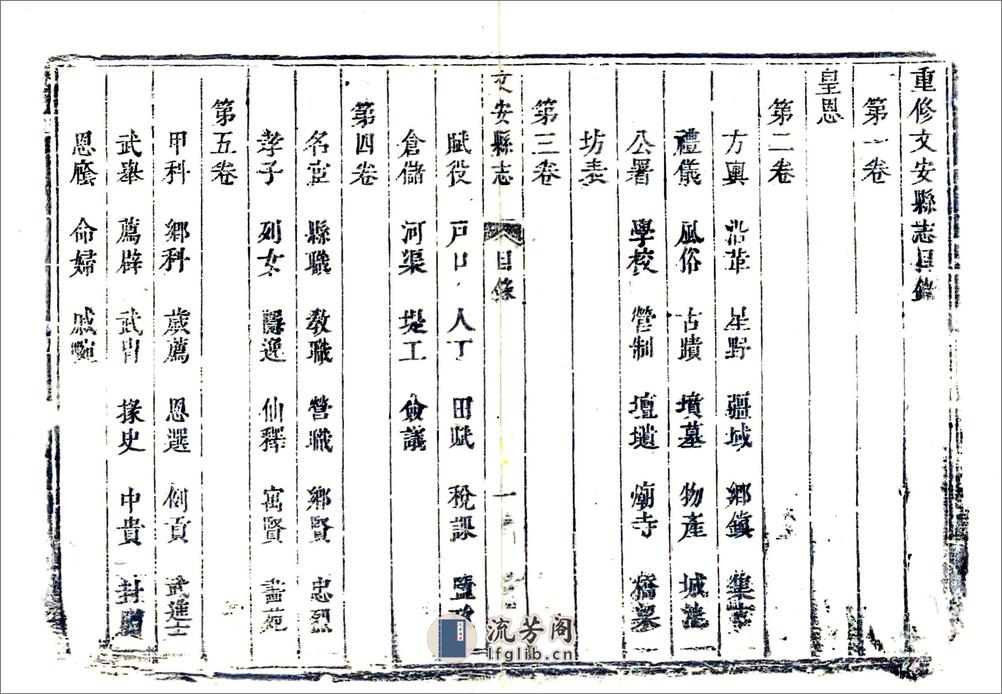 重修文安縣志目錄
第一卷
皇恩
第二卷
方輿 沿革 星野 疆域 鄉鎮 集市
禮儀 風俗 古蹟 墳墓 物產 城池
公署 學校 營制 壇壝 廟寺 橋梁
坊表
第三卷
文安縣志 目錄 一
賦役 戸口 人丁 田賦 稅課 鹽政
倉儲 河渠 堤工 僉議
第四卷
名宦 縣職 教職 營職 鄉賢 忠烈
孝子 列女 隱逸 仙釋 寓賢 畵苑
第五卷
甲科 鄉科 歲薦 恩選 例貢 武進士
武舉 薦辟 武胄 掾史 中貴 封
恩廕 命婦 戚畹
流芳阁
lfglib.cn